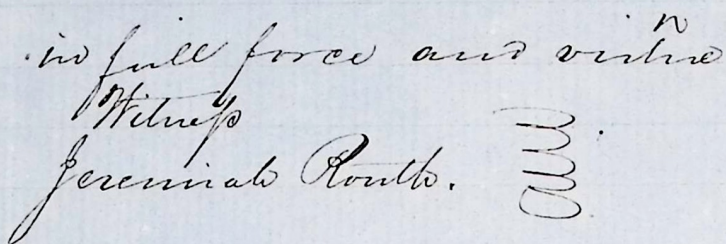 in full force and virtue
Witness
Jeremiah Routh.